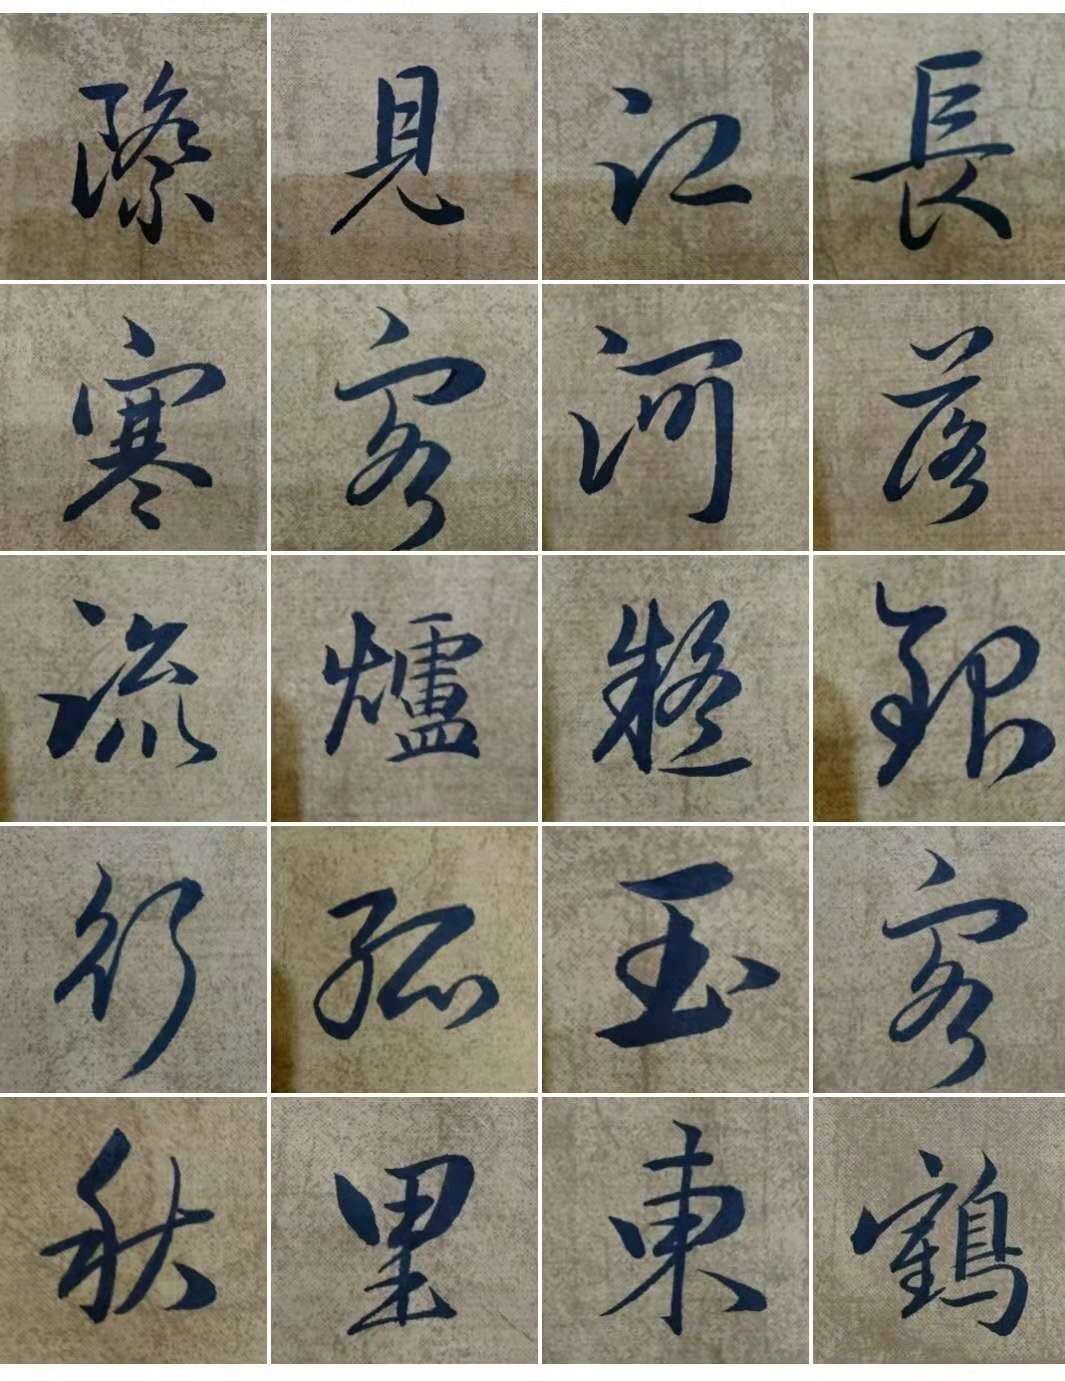 際見江長
寒客河落
流爐銀
行孤玉客
秋里東鶴